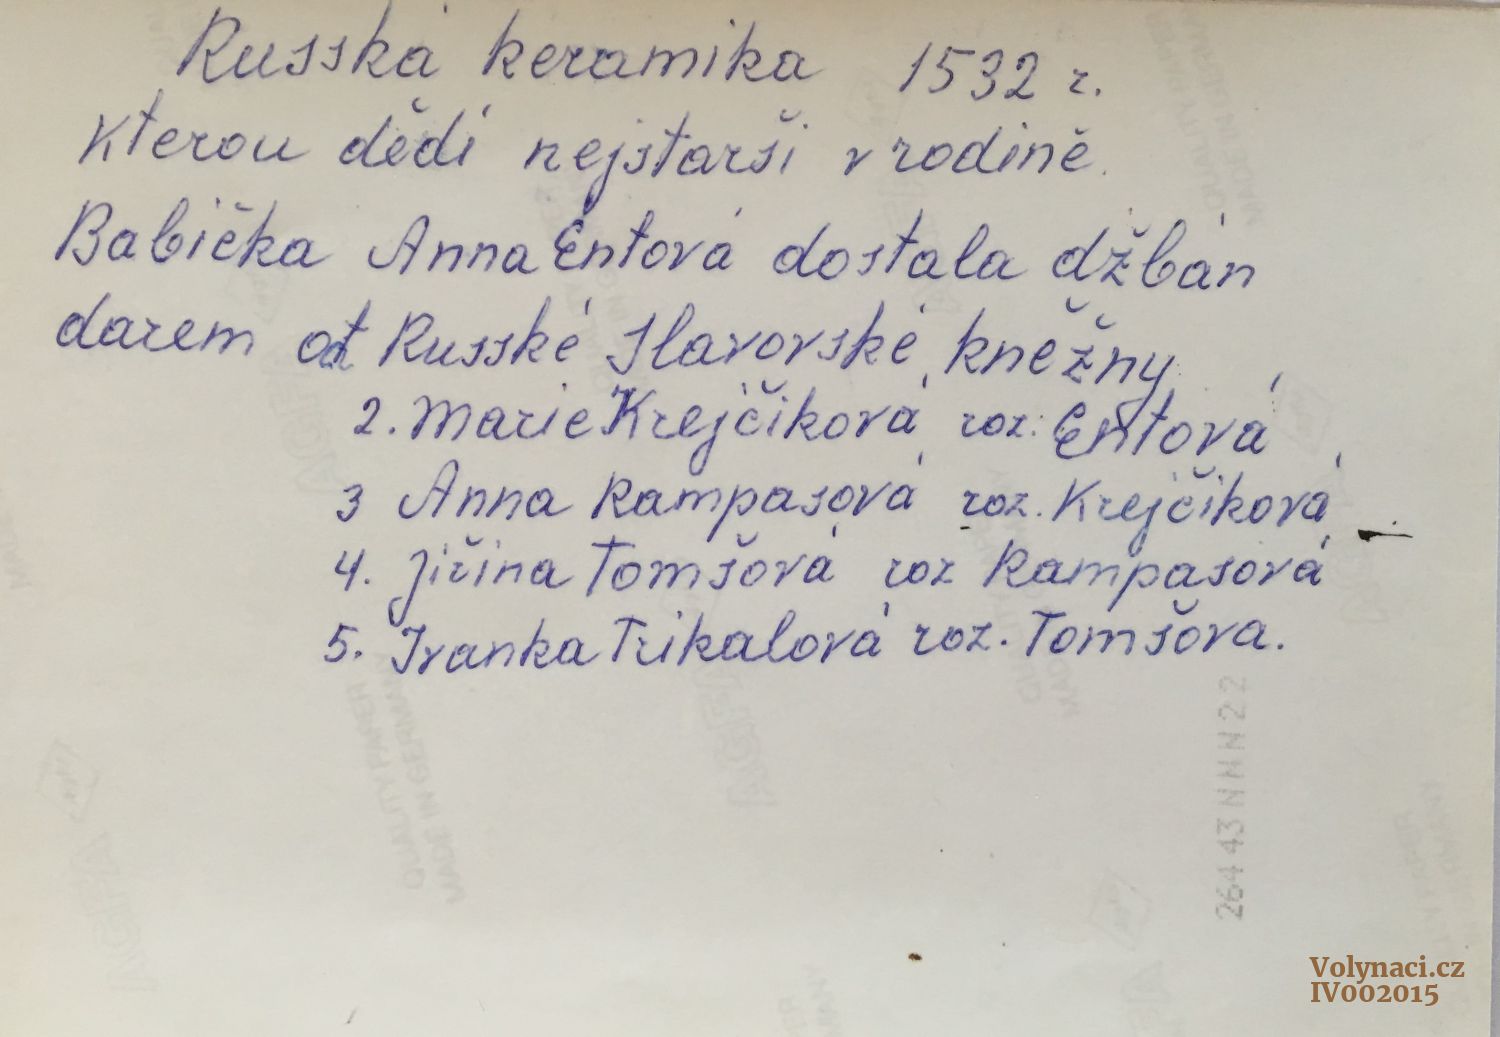 Russká keramika 1532 r.
kterou dědí nejstarši v rodině.
Babička Anna Entová dostala džbán
darem od Russké Slavovské kněžny
2. Marie Krejčiková roz: Entová
3 Anna Rampasová roz. Krejčiková
4. Jiřina Tomšová roz Rampasová
5. Ivanka Trikalová roz. Tomšova.
26443NNN22
Volynaci.cz
IV002015